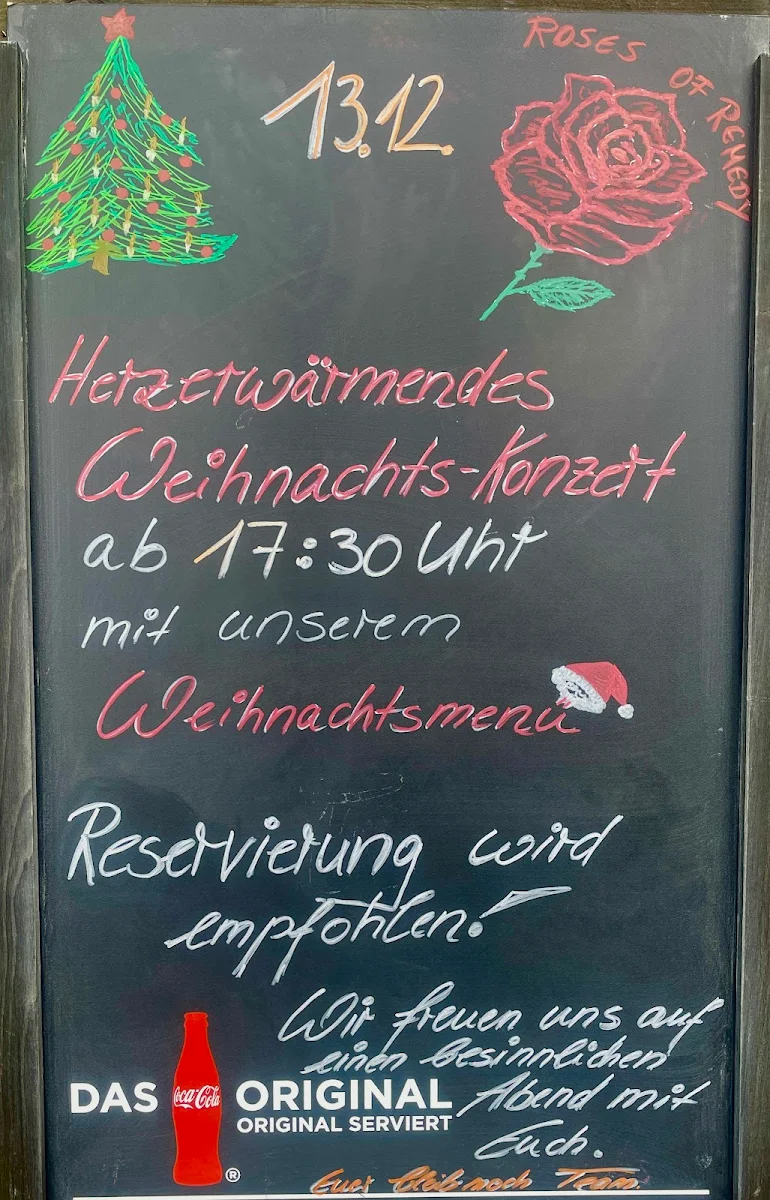 13.12.
ROSES OF REMEDY
Herzerwärmendes
Weihnachts-Konzert
ab 17:30 Uhr
mit unserem
Weihnachtsmenu
Reservierung wird
empfohlen!
Wir freuen uns auf
einen besinnlichen
Abend mit
Euch.
DAS Coca-Cola ORIGINAL
ORIGINAL SERVIERT
®
Euer bleib noch Team